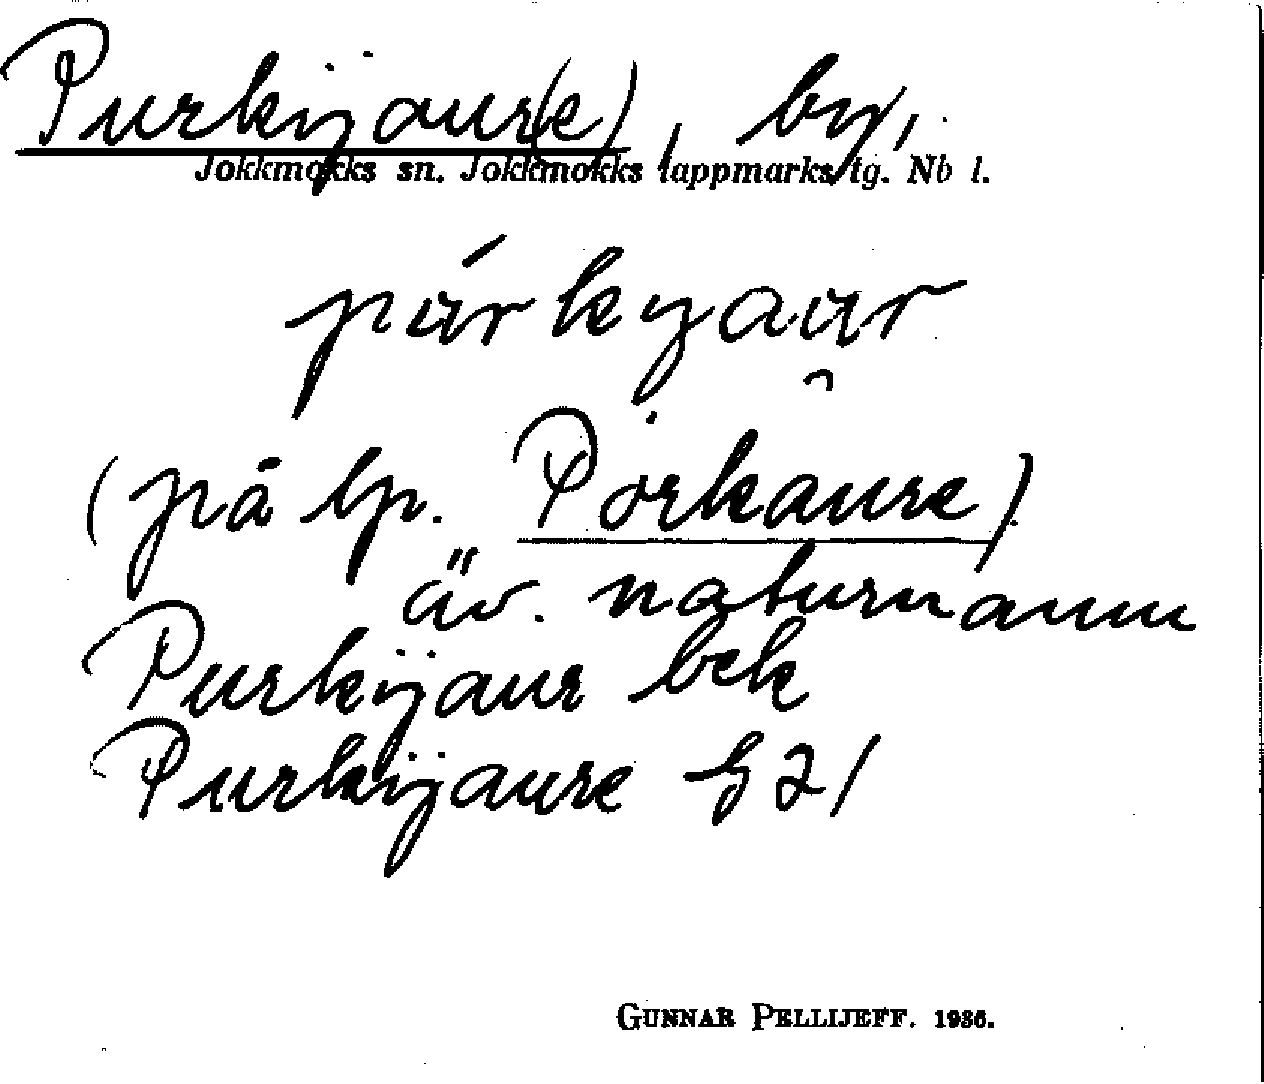 Purkijaur(e), by,
Jokkmokks sn. Jokkmokks lappmarks tg. Nb l.
púrkyau̯r
(på lp. Pórkaure)
äv. naturnamn
Purkijaur bek
Purkijaure G 21
GUNNAR PELLIJEFF. 1936.